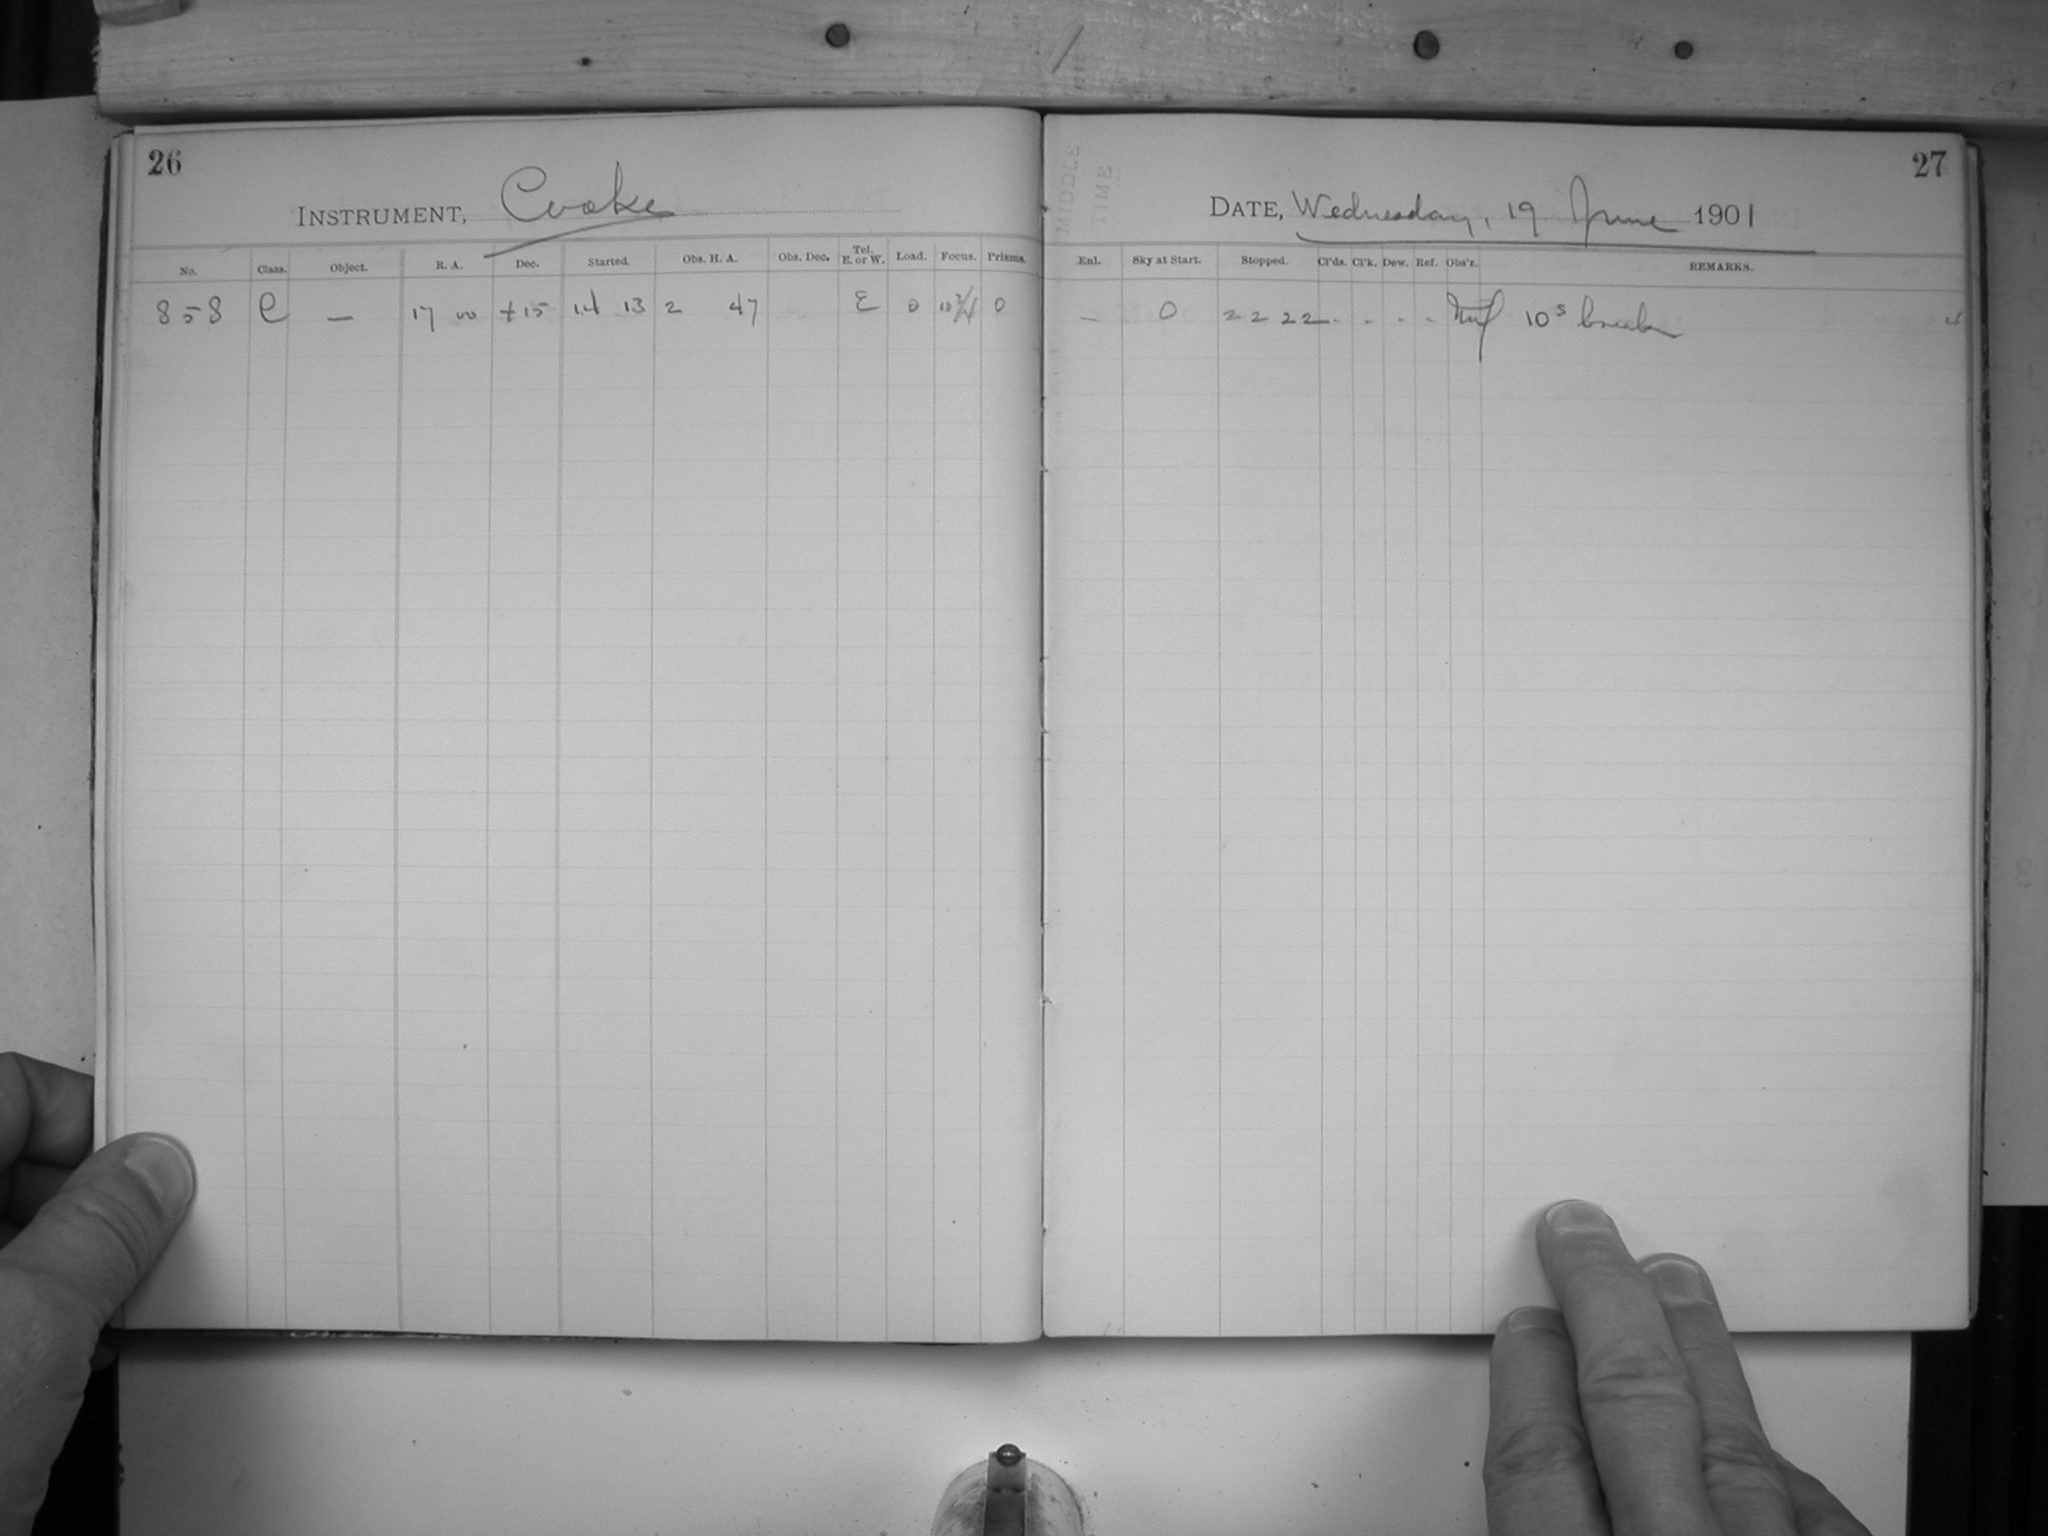 26
INSTRUMENT, Cooke
No. Class. Object. R. A. Dec. Started. Obs. H. A. Obs. Dec. Tel. E. or W. Load. Focus. Prisms.
858 C — 17 00 +15 14 13 2 47 E 0 0
MIDDLE
TIME
27
DATE, Wednesday, 19 June 1901
Enl. Sky at Start. Stopped. Cl'ds. Cl'k. Dew. Ref. Obs'r. REMARKS.
— 0 22 22 - - - - 10s break